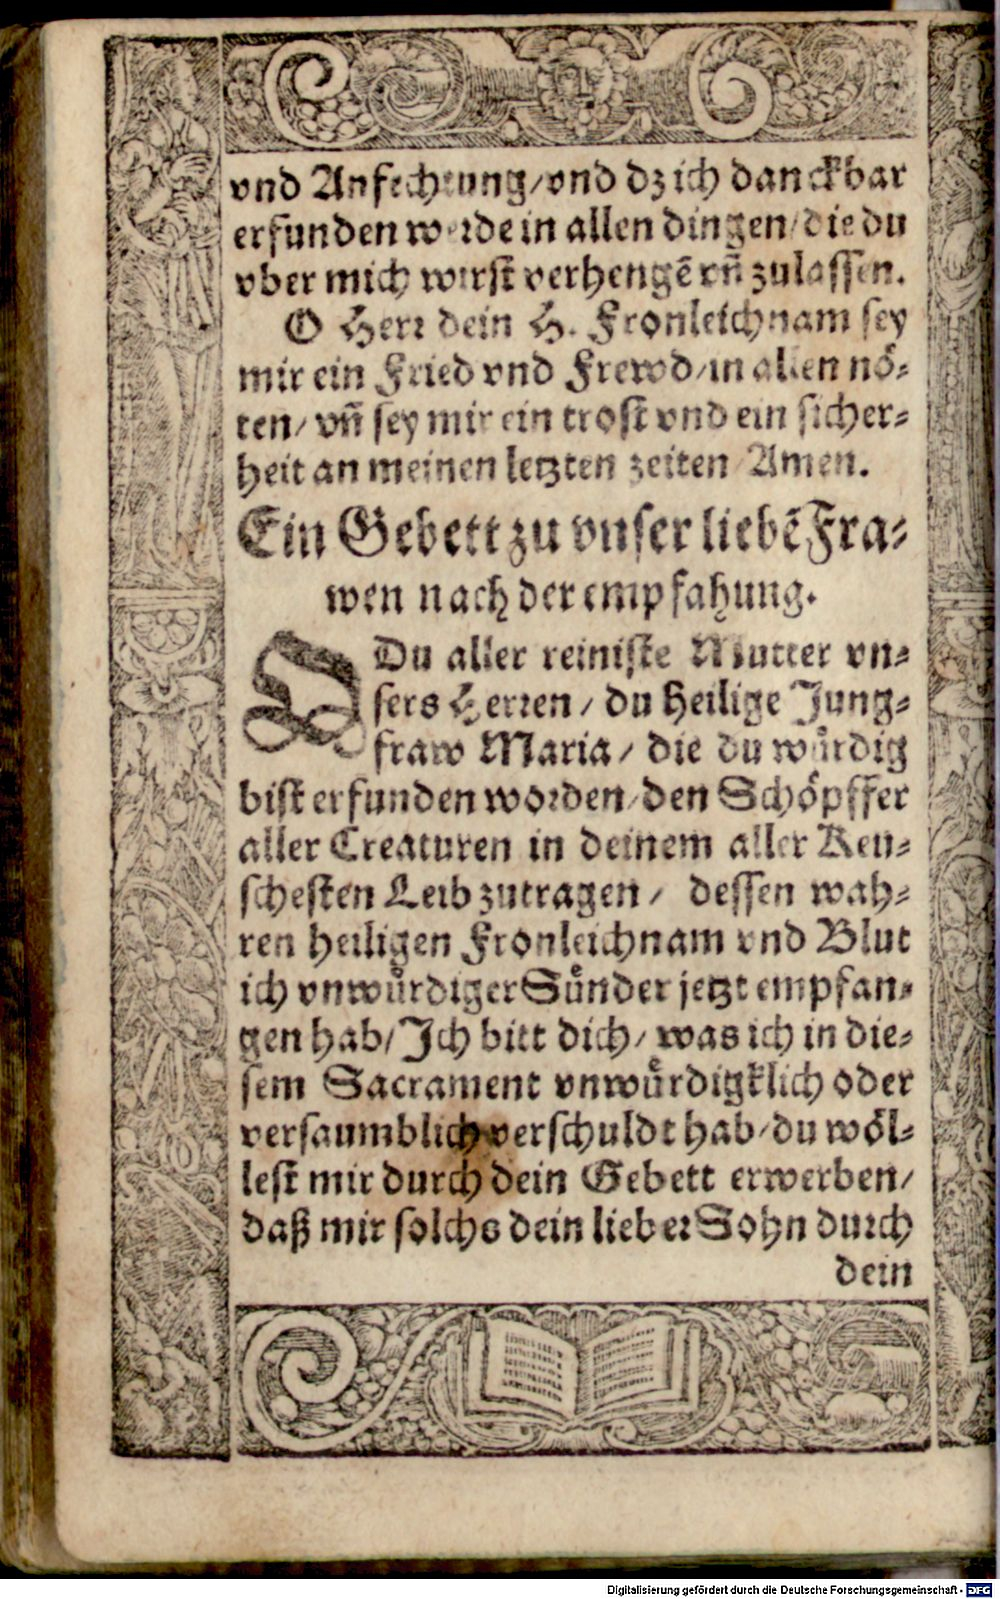 vnd Anfechtung/vnd dz ich danckbar
erfunden werde in allen dingen/die du
vber mich wirst verhengẽ vñ zulassen.
O Herr dein H. Fronleichnam sey
mir ein Fried vnd Frewd/in allen nö⸗
ten/ vñ sey mir ein trost vnd ein sicher⸗
heit an meinen letzten zeiten Amen.
Ein Gebett zu vnser liebẽ Fra⸗
wen nach der empfahung.
O Du aller reiniste Mutter vn⸗
sers Herren / du Heilige Jung⸗
fraw Maria / die du wuͤrdig
bist erfunden worden/den Schöpffer
aller Creaturen in deinem aller Keu⸗
schesten Leib zutragen / dessen wah⸗
ren heiligen Fronleichnam vnd Blut
ich vnwuͤrdiger Suͤnder jetzt empfan⸗
gen hab/ Ich bitt dich/ was ich in die⸗
sem Sacrament vnwuͤrdigklich oder
versaumblich verschuldt hab/du wöl⸗
lest mir durch dein Gebett erwerben/
daß mir solchs dein lieber Sohn durch
dein
Digitalisierung gefördert durch die Deutsche Forschungsgemeinschaft - DFG